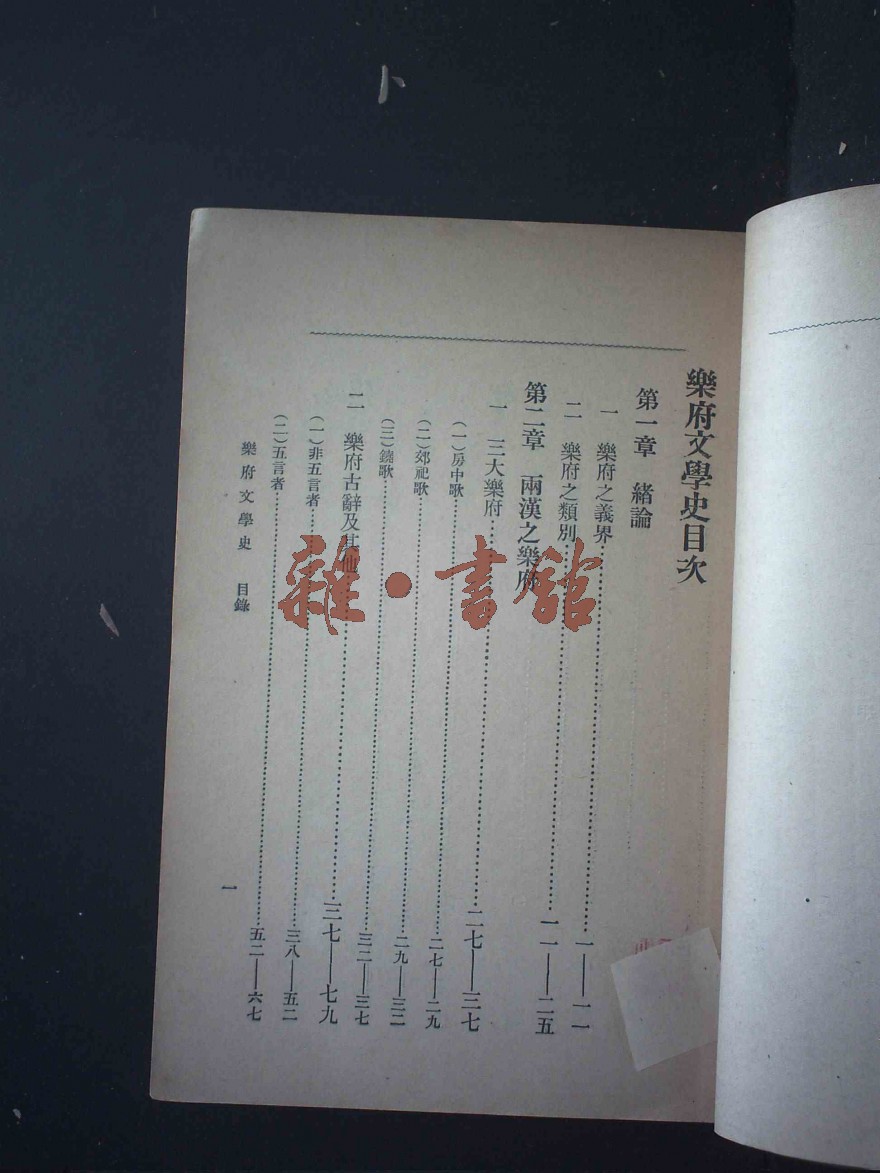 樂府文學史目次
第一章　緒論
一　樂府之義界……一——一一
二　樂府之類別……一一——二五
第二章　兩漢之樂府
一　三大樂府……二七——三七
（一）房中歌……二七——二九
（二）郊祀歌……二九——三二
（三）鐃歌……三二——三七
二　樂府古辭及其他……三七——七九
（一）非五言者……三八——五二
（二）五言者……五二——六七
樂府文學史　目錄
一
雜·書館